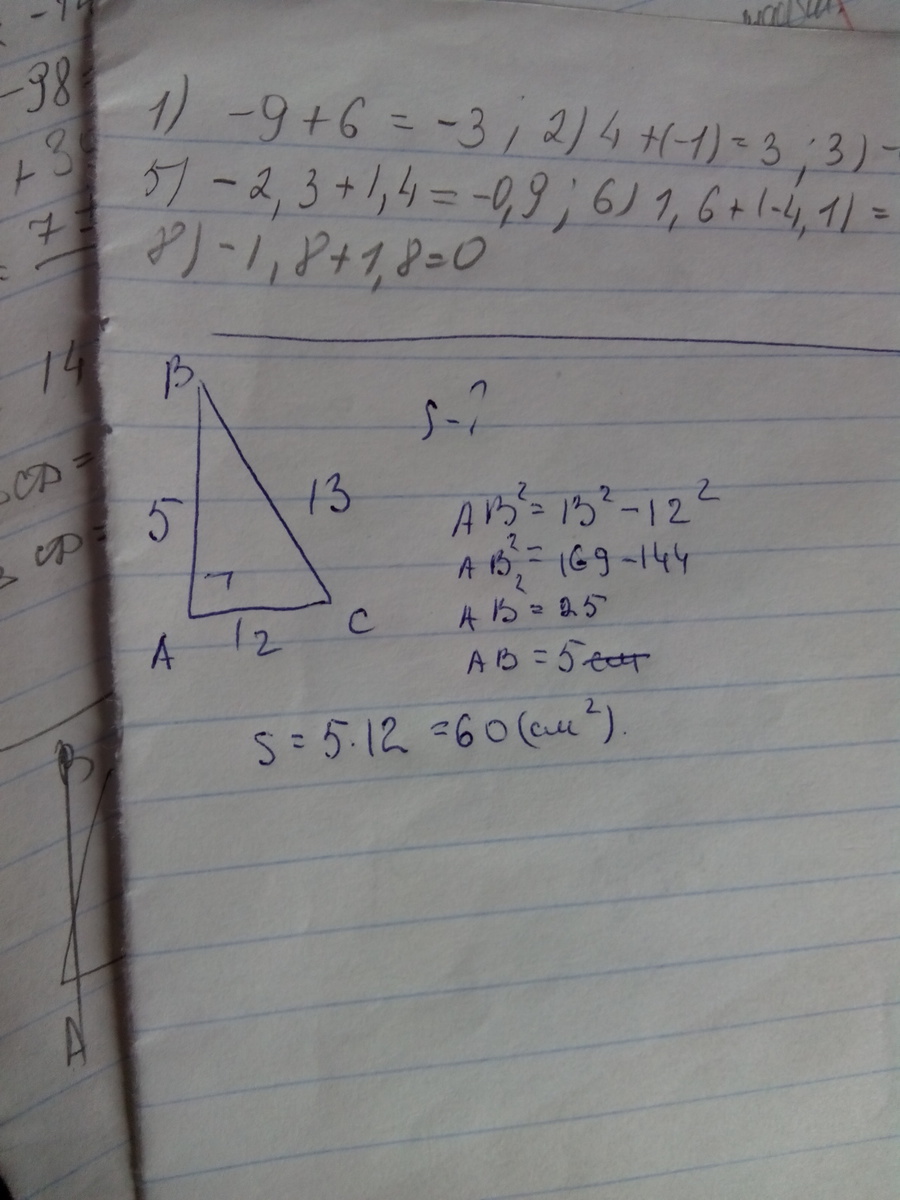 -98
+3
7
14
CD=
CD=
B
A
1) -9+6 = -3 ; 2) 4 +(-1) = 3 ; 3) -
5) -2,3+1,4 = -0,9 ; 6) 1,6+(-4,1) =
8) -1,8+1,8=0
B
S-?
5
13
A
12
C
AB²= 13²-12²
AB²= 169-144
AB²= 25
AB = 5
S = 5·12 = 60 (см²).